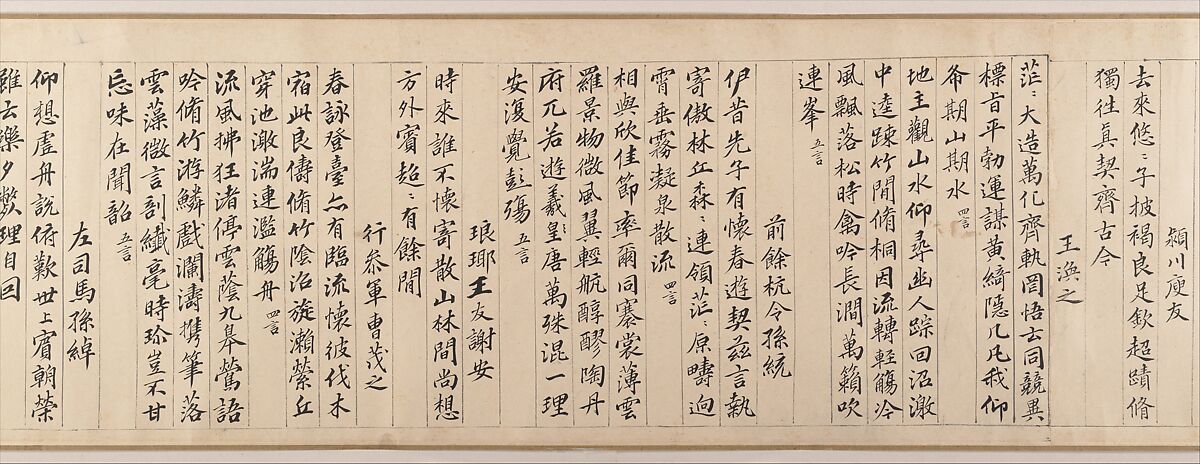 頴川庾友
去來悠〻子披褐良足欽超蹟脩
獨往真契齊古今
王渙之
茫〻大造萬化齊軌罔悟玄同競異
標旨平勃運謀黃綺隱几凡我仰
希期山期水 四言
地主觀山水仰尋幽人踪回沼激
中逵疎竹間脩桐因流轉輕觴冷
風飄落松時禽吟長澗萬籟吹
連峯 五言
前餘杭令孫統
伊昔先子有懷春遊契茲言執
寄傲林丘森〻連領茫〻原疇迥
霄垂霧凝泉散流 四言
相與欣佳節率爾同褰裳薄雲
羅景物微風翼輕航醇醪陶丹
府兀若遊羲皇唐萬殊混一理
安復覺彭殤 五言
琅瑘王友謝安
時來誰不懷寄散山林間尚想
方外賓超〻有餘閒
行參軍曹茂之
春詠登臺亦有臨流懷彼伐木
宿此良儔脩竹陰沼旋瀨縈丘
穿池激湍連濫觴舟 四言
流風拂枉渚停雲蔭九皋鶯語
吟脩竹游鱗戲瀾濤攜筆落
雲藻微言剖纖毫時珍豈不甘
忘味在聞韶 五言
左司馬孫綽
仰想虛舟說俯歎世上賓朝榮
雖云樂夕斃理自回